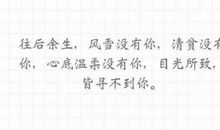 往后余生，风雪没有你，清贫没有
你，心底温柔没有你，目光所致，
皆寻不到你。